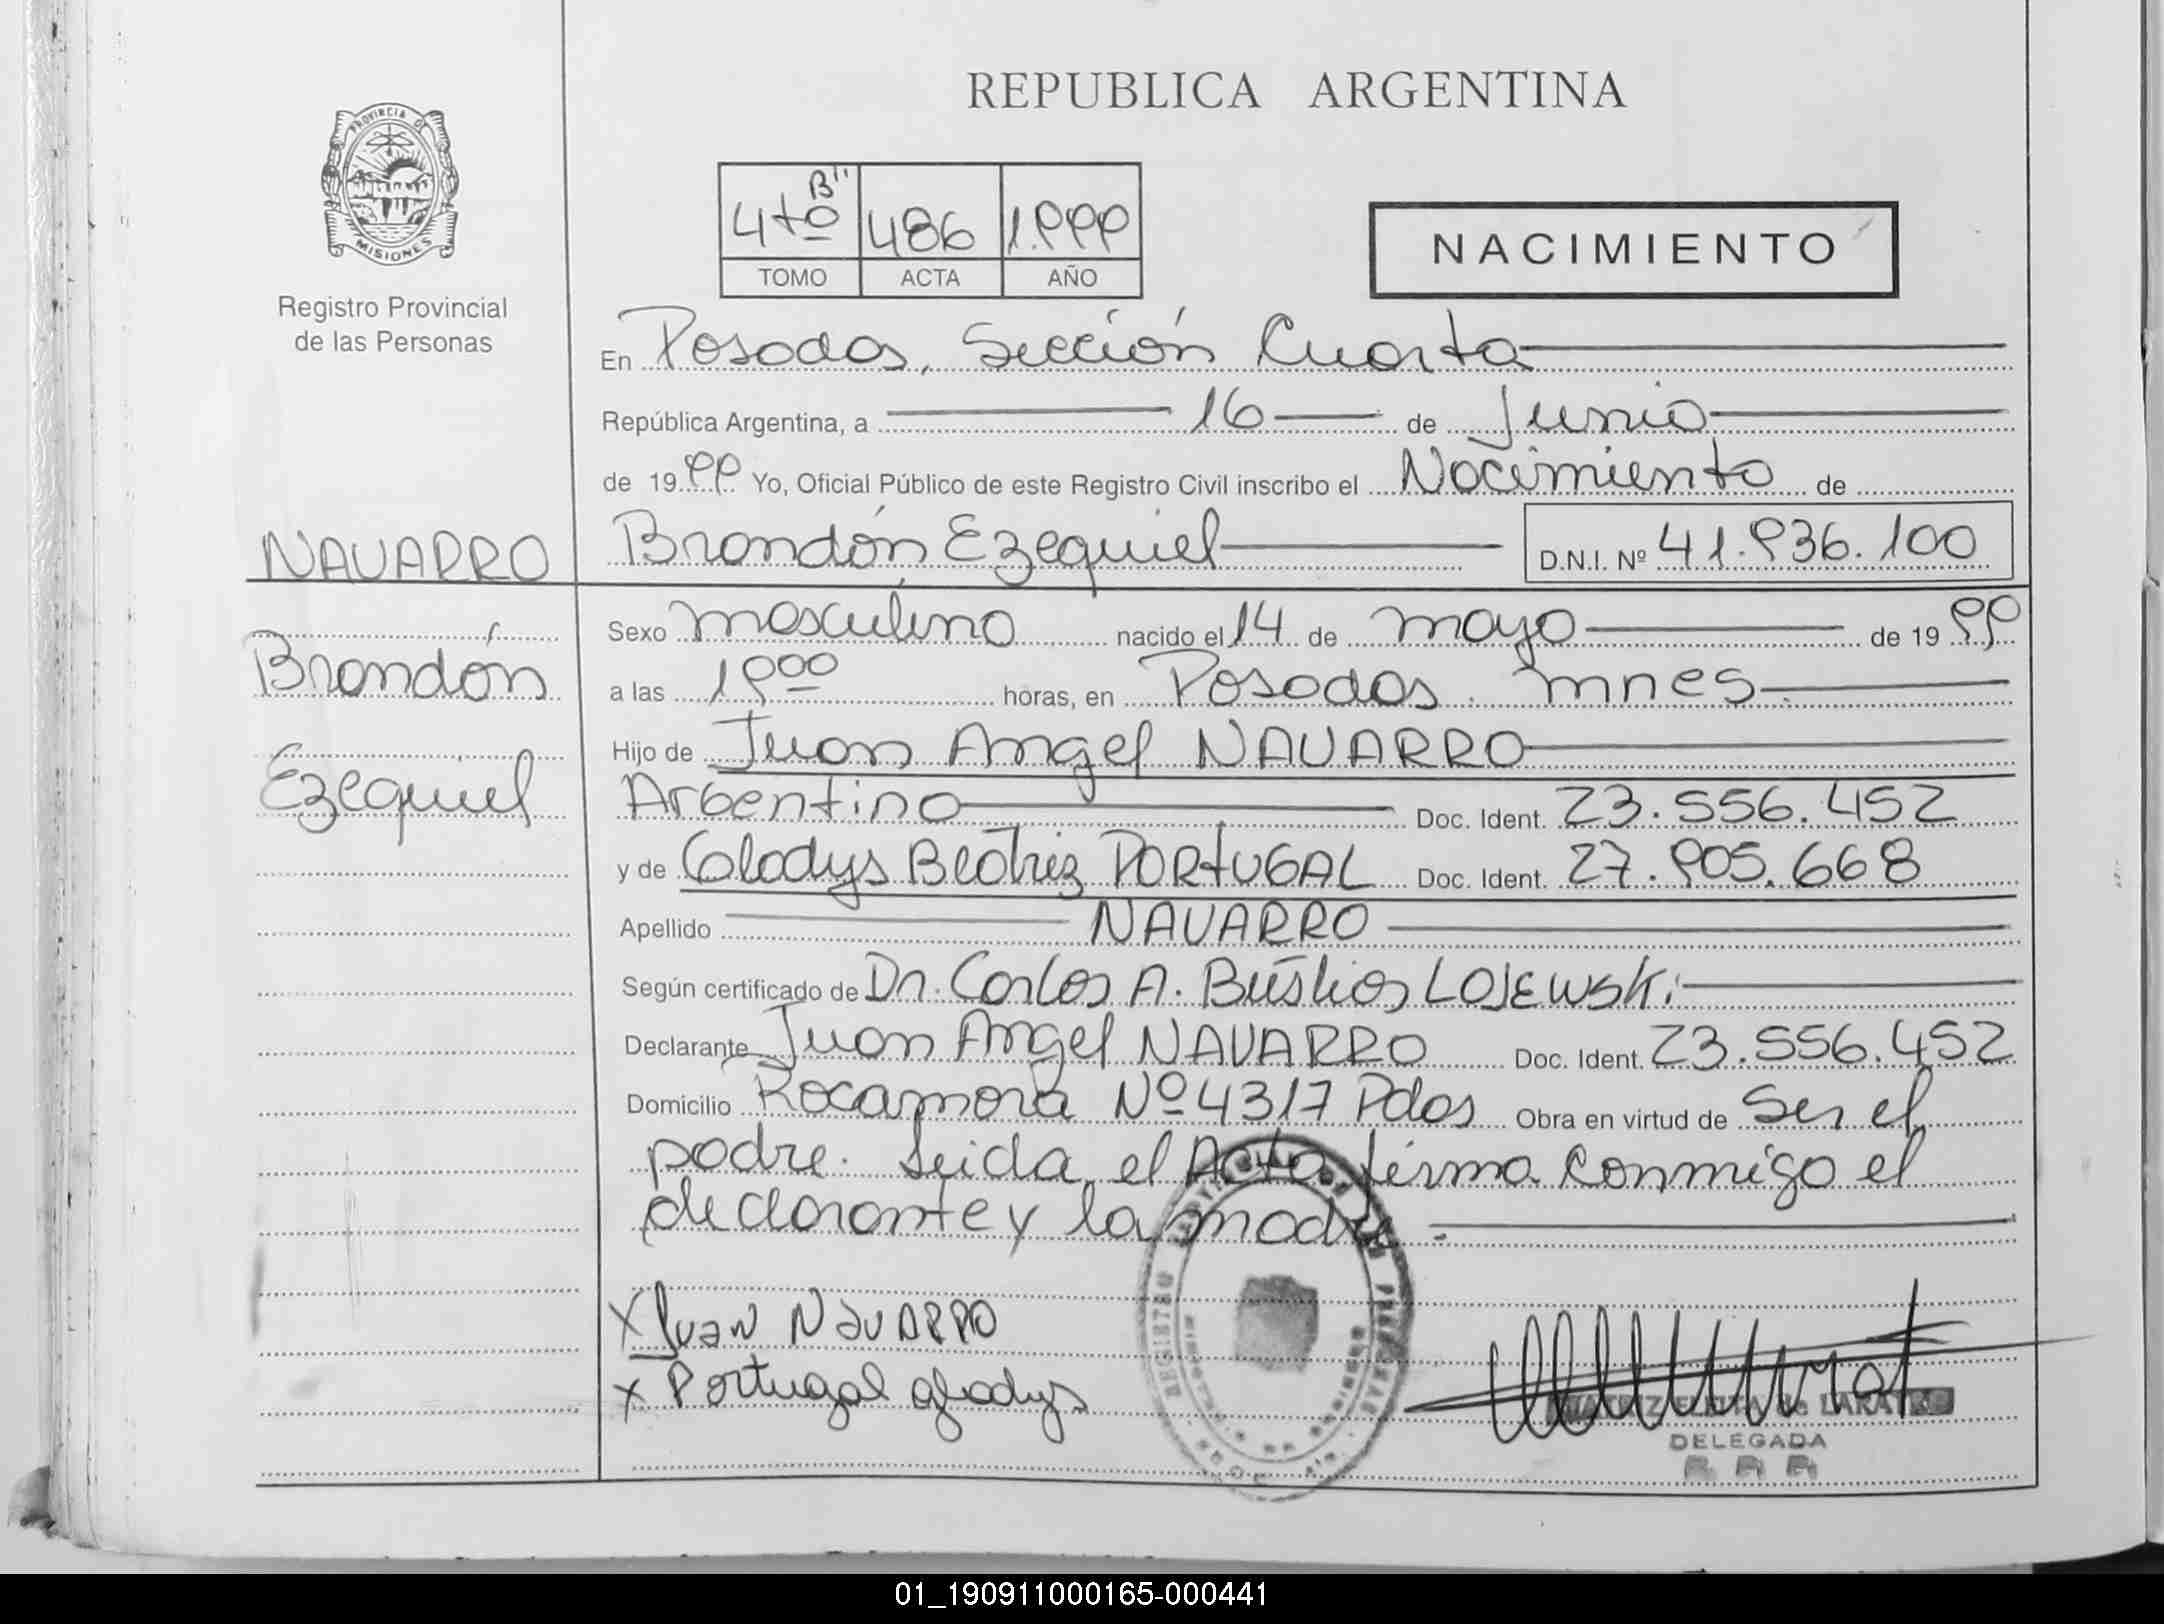 REPUBLICA ARGENTINA
PROVINCIA DE
MISIONES
Registro Provincial
de las Personas
4to B"
486
1.999
TOMO
ACTA
AÑO
NACIMIENTO
En Posadas, Sección Cuarta
República Argentina, a 16 de Junio
de 1999 Yo, Oficial Público de este Registro Civil inscribo el Nacimiento de
NAVARRO
Brandón Ezequiel D.N.I. Nº 41.936.100
Sexo masculino nacido el 14 de mayo de 1999
Brandón
a las 19 00 horas, en Posadas. mnes
Hijo de Juan Angel NAVARRO
Ezequiel
Argentino Doc. Ident. 23.556.452
y de Gladys Beatriz PORTUGAL Doc. Ident. 27.905.668
Apellido NAVARRO
Según certificado de Dr. Carlos A. Bustios LOJEWSKi
Declarante Juan Angel NAVARRO Doc. Ident. 23.556.452
Domicilio Rocamora Nº 4317 Pdas Obra en virtud de Ser el
padre. Leida el Acta firma conmigo el
declarante y la madre.
X Juan NavaRRO
X Portugal gladys
REGISTRO
DELEGADA
01_190911000165-000441